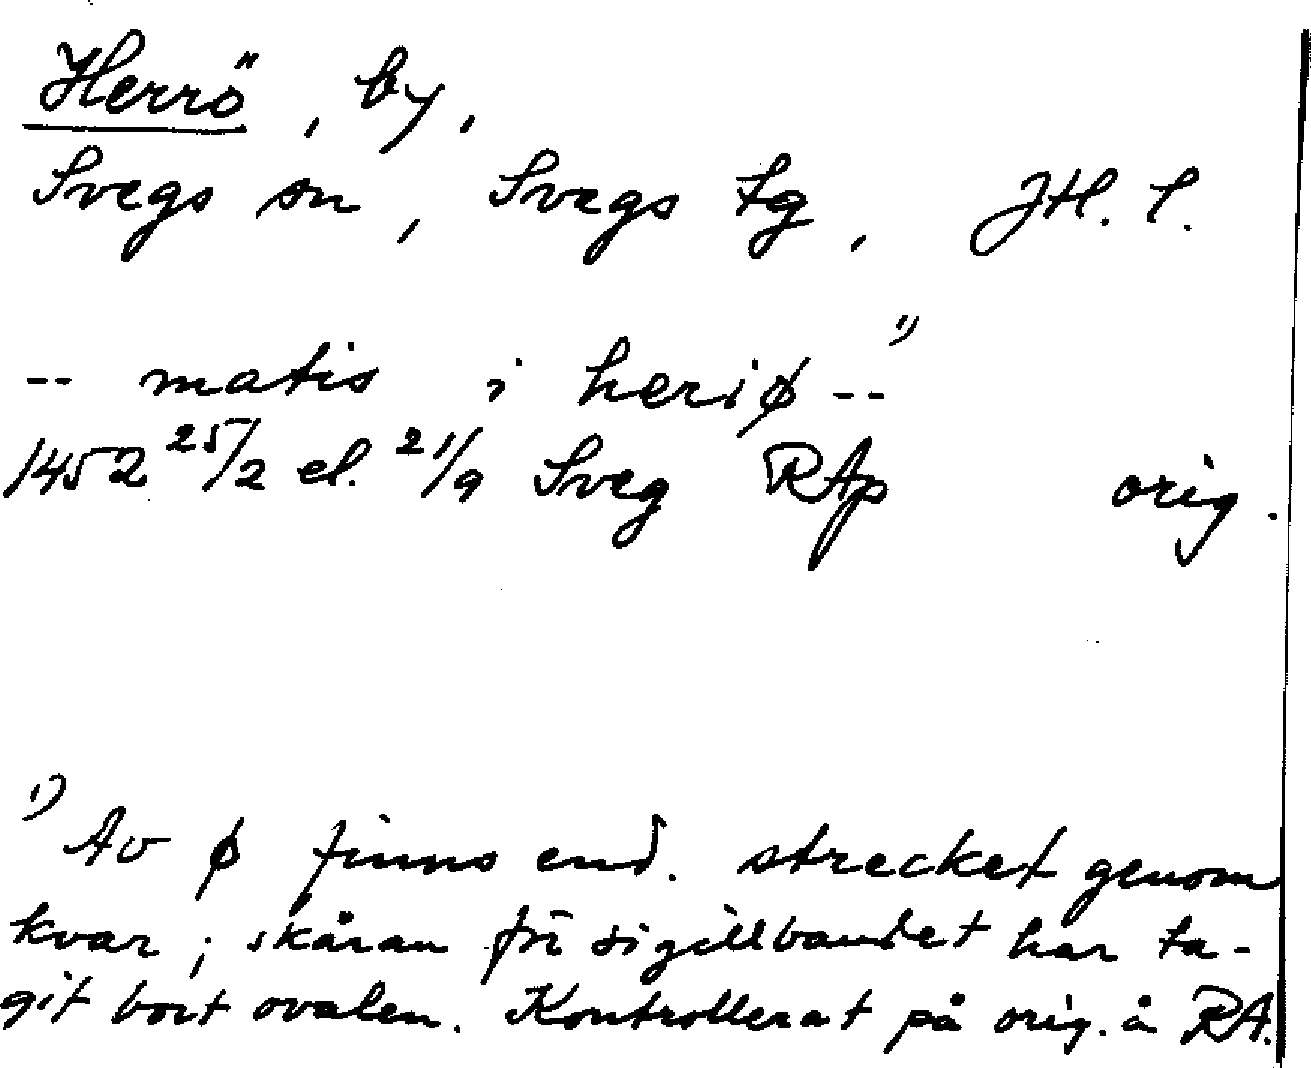 Herrö, by,
Svegs sn, Svegs tg, JH. l.
-- matis i heriø --1)
1452 25/2 el. 21/9 Sveg RAp orig.
1) Av ø finns end. strecket genom
kvar; skåran för sigillbandet har ta-
git bort ovalen. Kontrollerat på orig. å RA.